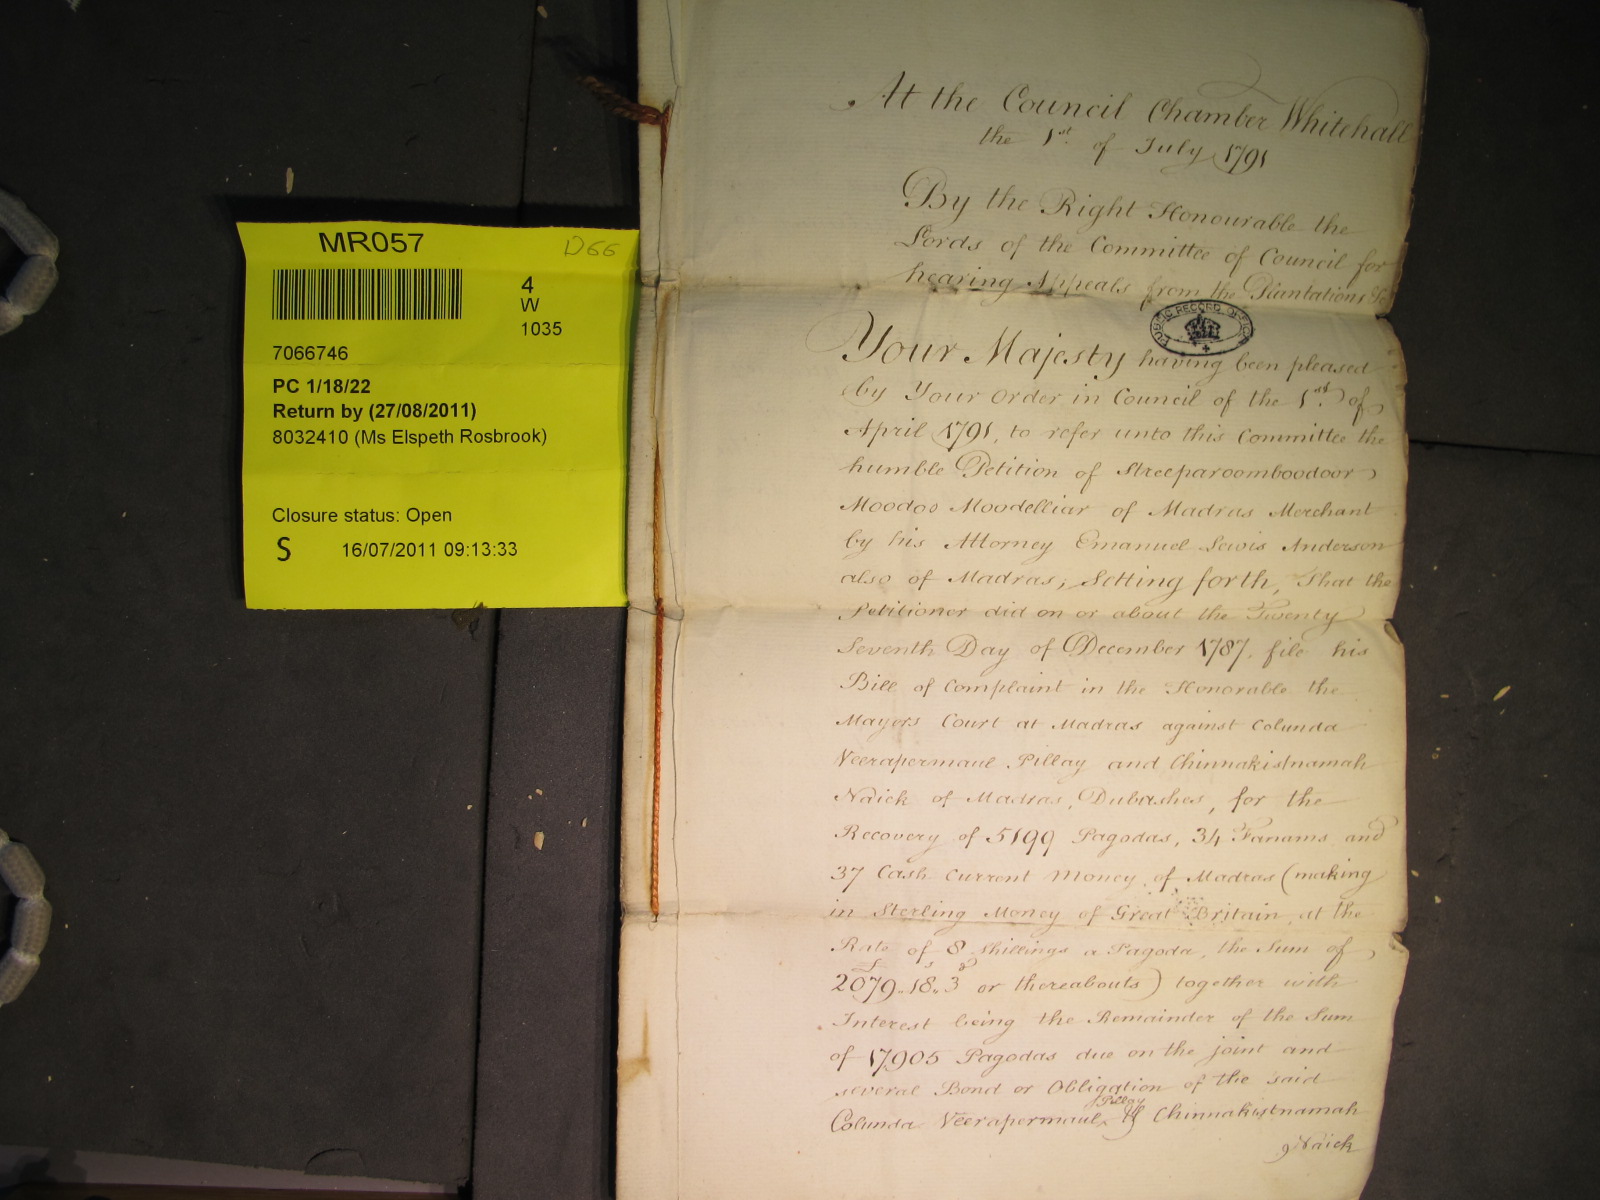 MR057
D66
4
W
1035
7066746
PC 1/18/22
Return by (27/08/2011)
8032410 (Ms Elspeth Rosbrook)
Closure status: Open
S 16/07/2011 09:13:33
At the Council Chamber Whitehall
the 1st. of July 1791
By the Right Honourable the
Lords of the Committee of Council for
hearing Appeals from the Plantations &c
PUBLIC RECORD OFFICE
Your Majesty having been pleased
by Your Order in Council of the 1st. of
April 1791, to refer unto this Committee the
humble Petition of Streeparoomboodoor
Moodoo Moodelliar of Madras Merchant
by his Attorney Emanuel Lewis Anderson
also of Madras; Setting forth, That the
Petitioner did on or about the Twenty
Seventh Day of December 1787. file his
Bill of Complaint in the Honorable the
Mayors Court at Madras against Colunda
Veerapermaul Pillay and Chinnakistnamah
Naick of Madras, Dubashes, for the
Recovery of 5199 Pagodas, 34 Fanams and
37 Cash Current Money of Madras (making
in Sterling Money of Great Britain, at the
Rate of 8 Shillings a Pagoda, the Sum of
£2079.18s.3d or thereabouts) together with
Interest being the Remainder of the Sum
of 17905 Pagodas due on the joint and
several Bond or Obligation of the said
Colunda Veerapermaul Pillay & Chinnakistnamah
Naick